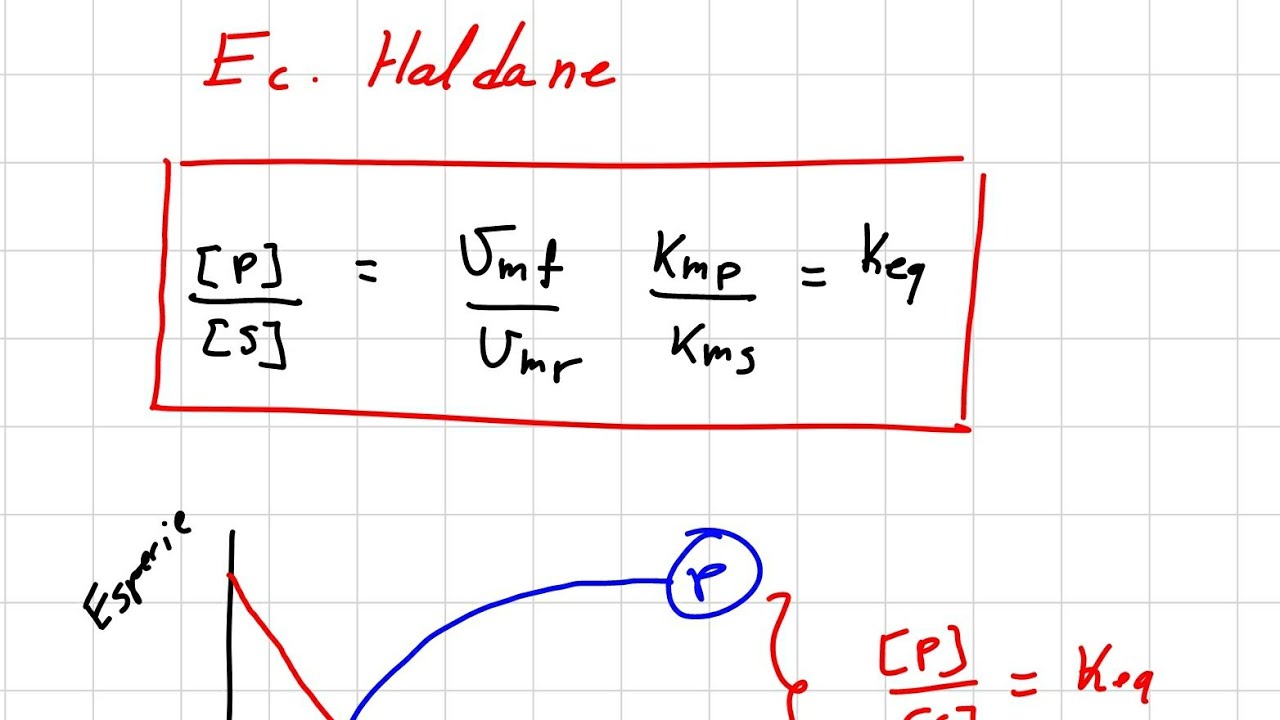 Ec. Haldane
[P] / [S] = Vmf / Vmr Kmp / Kms = Keq
Especie
P
[P] / [S] = Keq